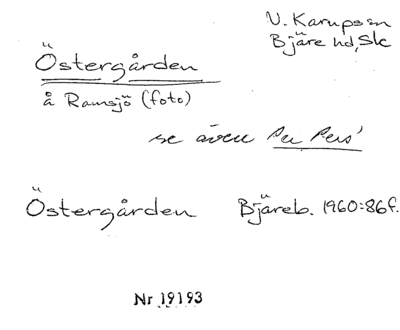 V. Karups sn
Bjäre hd, Sk
Östergården
å Ramsjö (foto)
se även Per Pers'
Östergården Bjäreb. 1960:86f.
Nr 19193